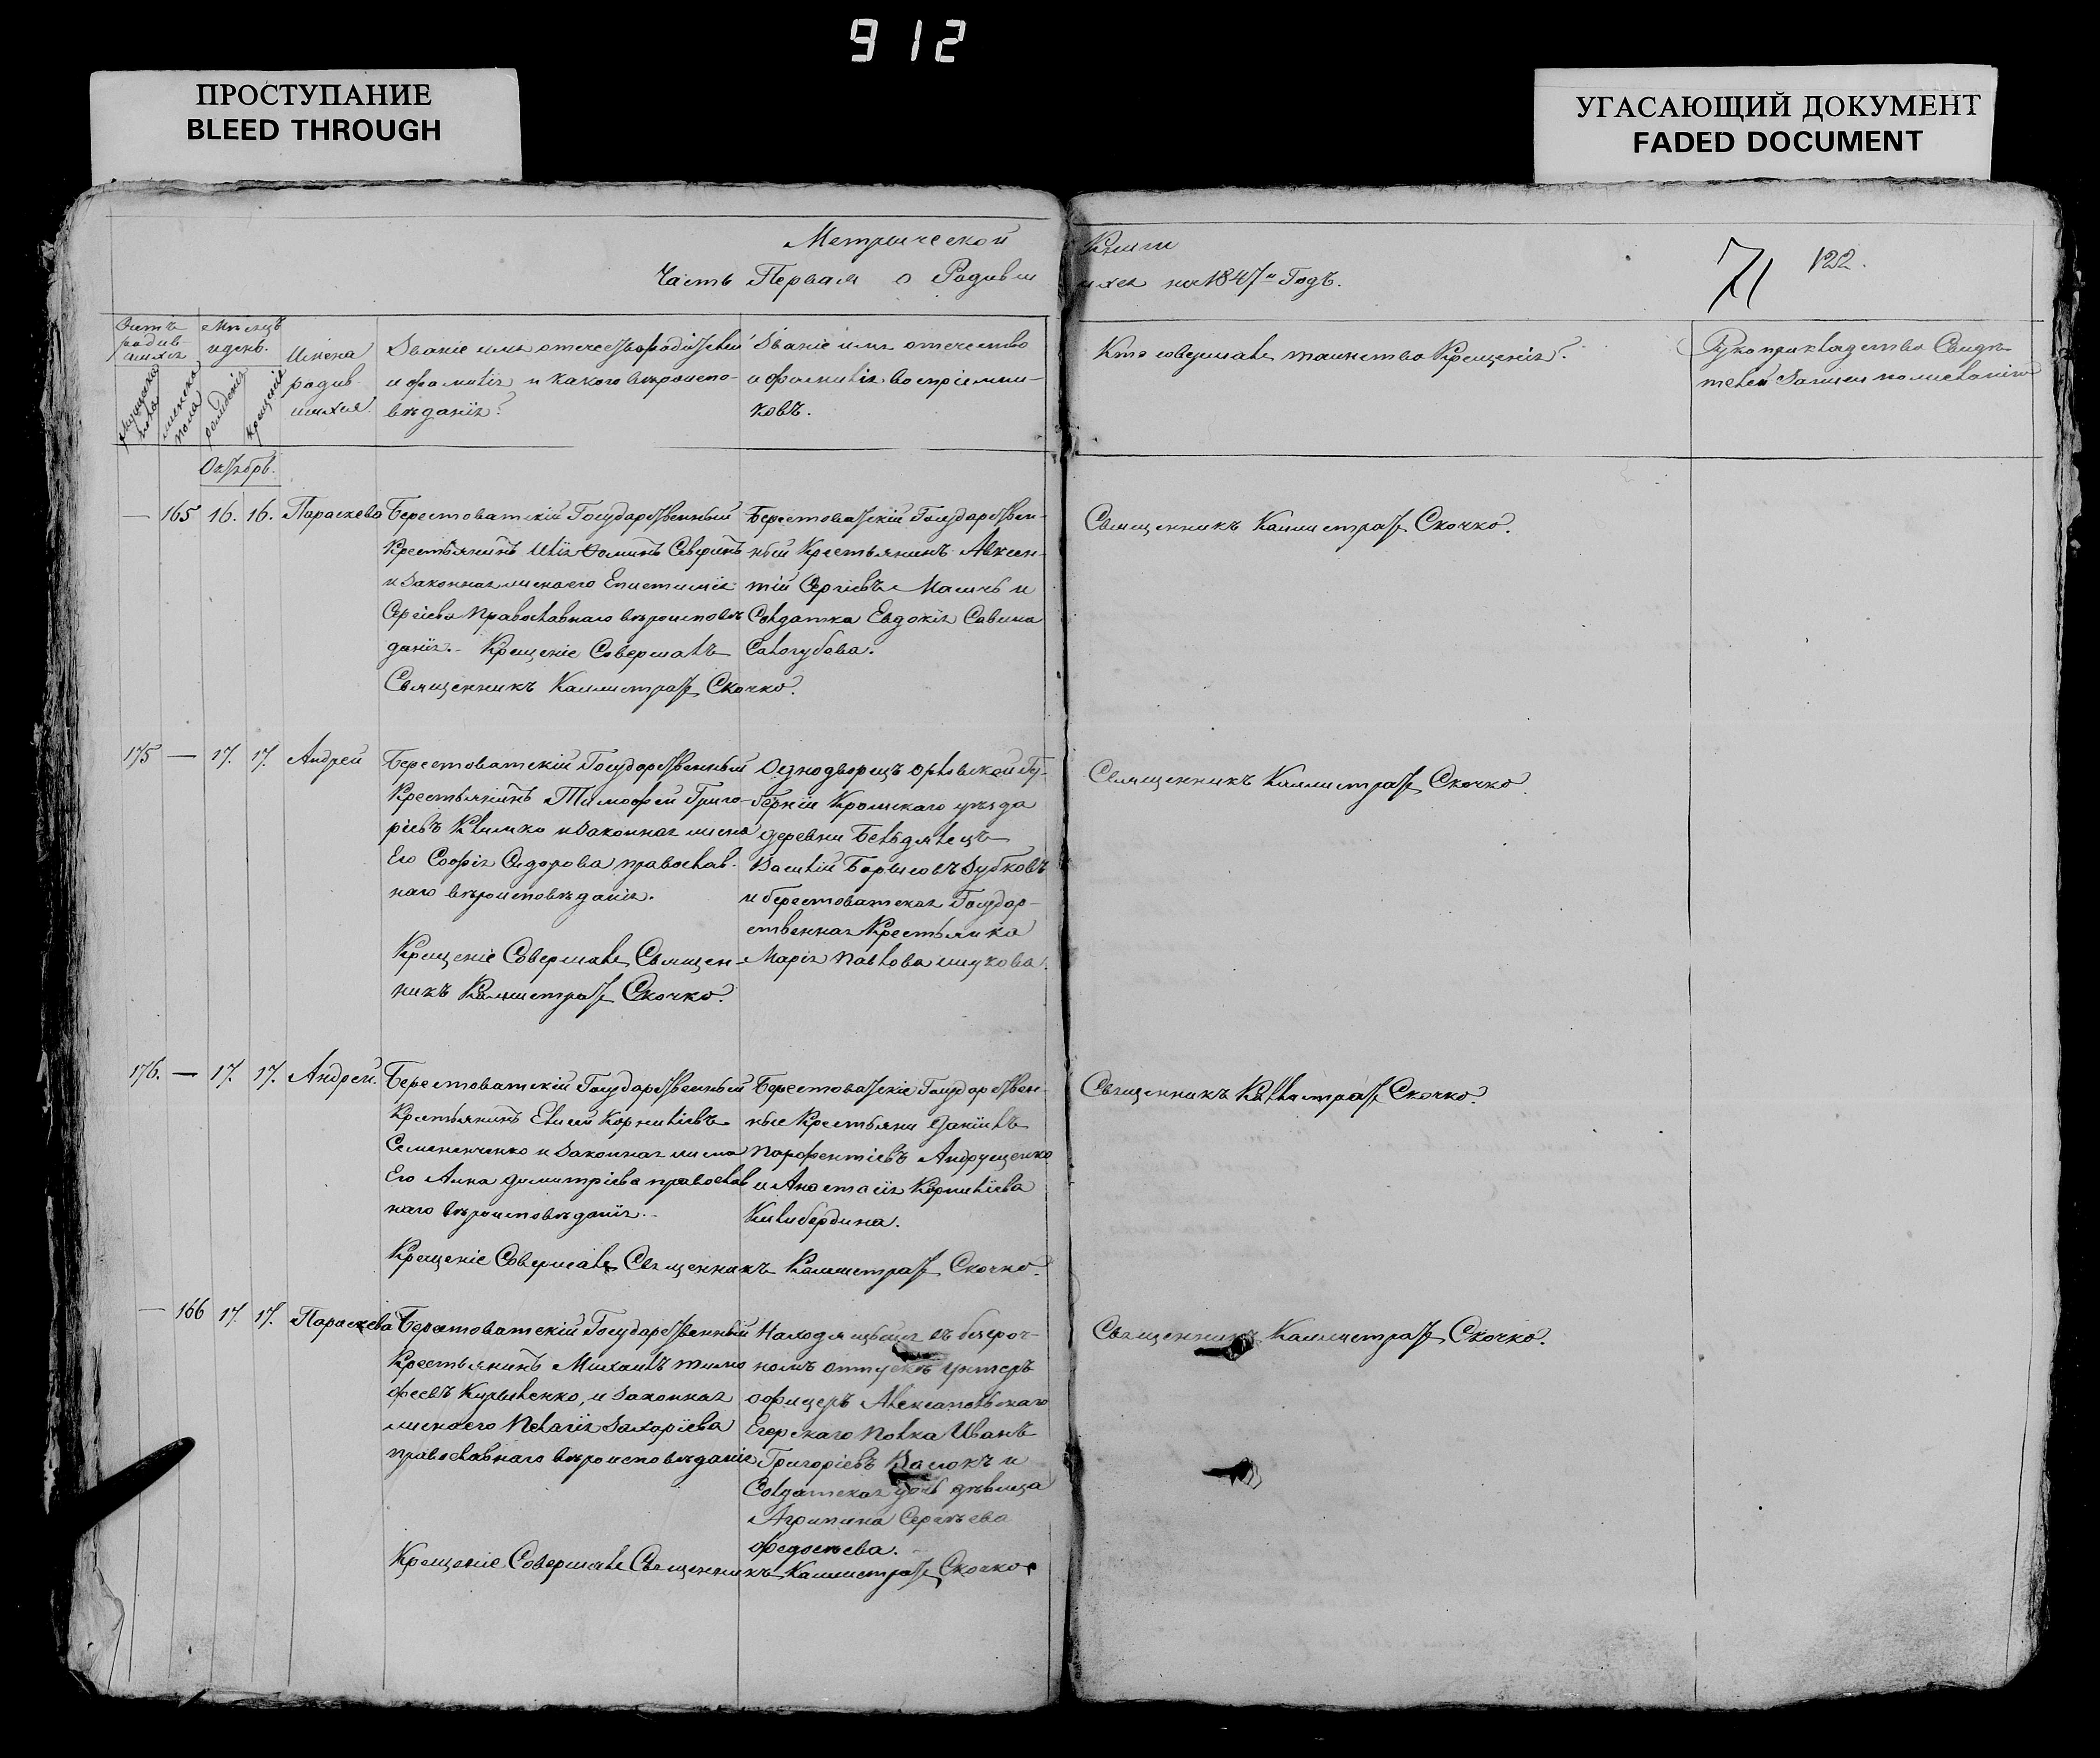 912
ПРОСТУПАНИЕ
BLEED THROUGH
УГАСАЮЩИЙ ДОКУМЕНТ
FADED DOCUMENT
Метрической Книги
Часть Первая о Родившихся на 1847й Годъ.
71 122.
Счетъ родившихся
мужеска пола
женска пола
Мѣсяцъ и день.
рожденія
крещенія
Имена родившихся.
Званіе имя отечество родителей
и фамилія и какого вѣроиспо-
вѣданія?
Званіе имя отечество
и фамилія воспріемни-
ковъ.
Кто совершалъ таинство Крещенія?
Рукоприкладство Свидѣ-
телей записи по желанію
Октябрь.
— 165 16. 16. Параскева
Берестоватскій Государственный
Крестьянинъ Илія Фоминъ Северинъ
и законная жена его Епистимія
Сергіева Православнаго вѣроисповѣ
данія. Крещеніе Совершалъ
Священникъ Каллистратъ Скочко.
Берестоватскій Государствен-
ный Крестьянинъ Авксен-
тій Сергіевъ и
Солдатка Евдокія Савина
Сологубова.
Священникъ Каллистратъ Скочко.
175 — 17. 17. Андрей
Берестоватскій Государственный
Крестьянинъ Тимофей Григо-
ріевъ Климко и законная жена
Его Софія Сидорова православ-
наго вѣроисповѣданія.
Крещеніе Совершалъ Священ-
никъ Каллистратъ Скочко.
Однодворецъ Орловской Гу-
берніи Кромскаго уѣзда
деревни
Василій Борисовъ Зубковъ
и берестоватская Государ-
ственная Крестьянка
Марія Павлова
Священникъ Каллистратъ Скочко.
176. — 17. 17. Андрей.
Берестоватскій Государственный
Крестьянинъ Елисей Корниліевъ
Семененченко и законная жена
Его Анна Димитріева православ
наго вѣроисповѣданія.
Крещеніе Совершалъ Священникъ Каллистратъ Скочко.
Берестоватскіе Государствен-
ные Крестьяни Даніилъ
Парфентіевъ Андрущенко
и Анастасія Корниліева
Килибердина.
Священникъ Каллистратъ Скочко.
— 166 17. 17. Параскева
Берестоватскій Государственный
Крестьянинъ Михаилъ Тимо
феевъ Кириленко, и законная
жена его Пелагія Захаріева
православнаго вѣроисповѣданія
Крещеніе Совершалъ Священникъ Каллистратъ Скочко
Находящійся въ безсроч-
номъ отпускѣ Унтеръ
офицеръ
Егерскаго Полка Иванъ
Григоріевъ и
Солдатская дочь дѣвица
Агрипина Сергѣева
Федосѣева.
Священникъ Каллистратъ Скочко.